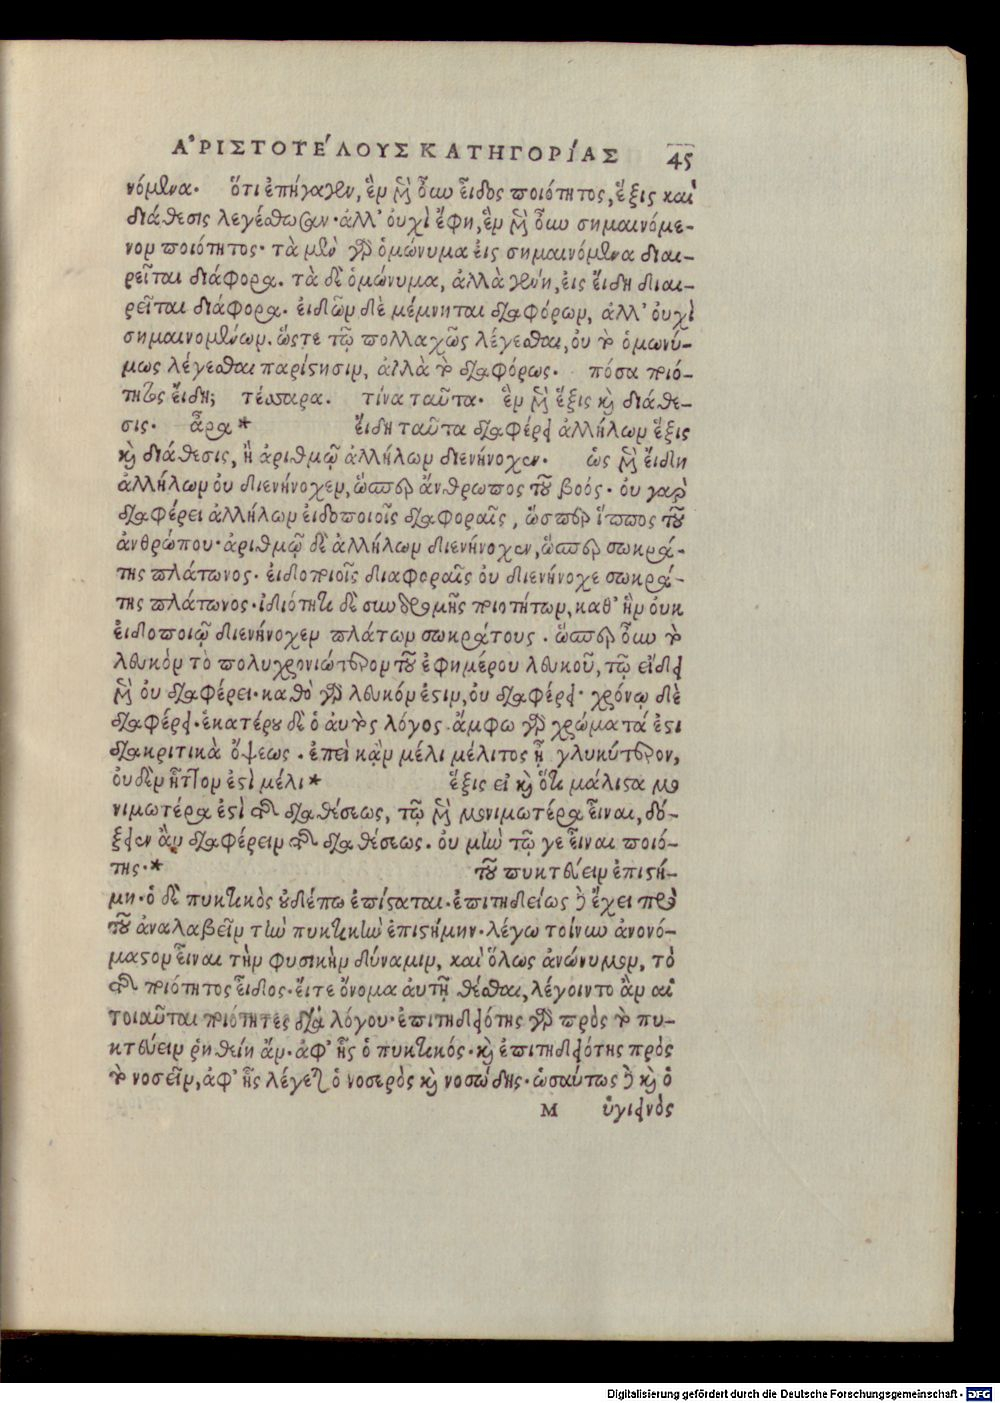 ΑʼΡΙΣΤΟΤΕʹΛΟΥΣ ΚΑΤΗΓΟΡΙʹΑΣ 45
νόμενα. ὅτι ἐπήγαγεν, ἓν μὲν οὖν εἶδος ποιότητος, ἕξις καὶ
διάθεσις λεγέσθωσαν. ἀλλʼ οὐχὶ ἔφη, ἓν μὲν οὖν σημαινόμε-
νον ποιότητος. τὰ μὲν γὰρ ὁμώνυμα εἰς σημαινόμενα διαι-
ρεῖται διάφορα. τὰ δὲ ὁμώνυμα, ἀλλὰ γένη, εἰς εἴδη διαι-
ρεῖται διάφορα. εἰδῶν δὲ μέμνηται διαφόρων, ἀλλʼ οὐχὶ
σημαινομένων. ὥστε τῷ πολλαχῶς λέγεσθαι, οὐ τὸ ὁμωνύ-
μως λέγεσθαι παρίστησιν, ἀλλὰ τὸ διαφόρως. πόσα ποιό-
τητος εἴδη; τέσσαρα. τίνα ταῦτα. ἓν μὲν ἕξις καὶ διάθε-
σις. ἆρα * εἴδη ταῦτα διαφέρει ἀλλήλων ἕξις
καὶ διάθεσις, ἢ ἀριθμῷ ἀλλήλων διενήνοχεν. ὡς μὲν εἴδη
ἀλλήλων οὐ διενήνοχεν, ὥσπερ ἄνθρωπος τοῦ βοός. οὐ γὰρ
διαφέρει ἀλλήλων εἰδοποιοῖς διαφοραῖς, ὥσπερ ἵππος τοῦ
ἀνθρώπου. ἀριθμῷ δὲ ἀλλήλων διενήνοχεν, ὥσπερ σωκρά-
της πλάτωνος. εἰδοποιοῖς διαφοραῖς οὐ διενήνοχε σωκρά-
της πλάτωνος. ἰδιότητι δὲ συνδρομῆς ποιοτήτων, καθʼ ἣν οὐκ
εἰδοποιῷ διενήνοχεν πλάτων σωκράτους. ὥσπερ οὖν τὸ
λευκὸν τὸ πολυχρονιώτερον τοῦ ἐφημέρου λευκοῦ, τῷ εἴδει
μὲν οὐ διαφέρει. καθὸ γὰρ λευκόν ἐστιν, οὐ διαφέρει. χρόνῳ δὲ
διαφέρει. ἑκατέρου δὲ ὁ αὐτὸς λόγος. ἄμφω γὰρ χρώματά ἐστι
διακριτικὰ ὄψεως. ἐπεὶ κἂν μέλι μέλιτος ᾖ γλυκύτερον,
οὐδὲν ἧττον ἐστὶ μέλι * ἕξις εἰ καὶ ὅτι μάλιστα μο
νιμωτέρα ἐστὶ τῆς διαθέσεως, τῷ μὲν μονιμωτέρα εἶναι, δό-
ξειεν ἂν διαφέρειν τῆς διαθέσεως. οὐ μὴν τῷ γε εἶναι ποιό-
της. * τοῦ πυκτεύειν ἐπιστή-
μη. ὁ δὲ πυκτικὸς οὐδέπω ἐπίσταται. ἐπιτηδείως δὲ ἔχει πρὸς
τοῦ ἀναλαβεῖν τὴν πυκτικὴν ἐπιστήμην. λέγω τοίνυν ἀνονό-
μαστον εἶναι τὴν φυσικὴν δύναμιν, καὶ ὅλως ἀνώνυμον, τὸ
τῆς ποιότητος εἶδος. εἴτε ὄνομα αὐτῇ θέσθαι, λέγοιντο ἂν αἱ
τοιαῦται ποιότητες διὰ λόγου. ἐπιτηδειότης γὰρ πρὸς τὸ πυ-
κτεύειν ῥηθείη ἄν. ἀφʼ ἧς ὁ πυκτικός. καὶ ἐπιτηδειότης πρὸς
τὸ νοσεῖν, ἀφʼ ἧς λέγεται ὁ νοσερὸς καὶ νοσώδης. ὡσαύτως δὲ καὶ ὁ
M ὑγιεινὸς
Digitalisierung gefördert durch die Deutsche Forschungsgemeinschaft - DFG